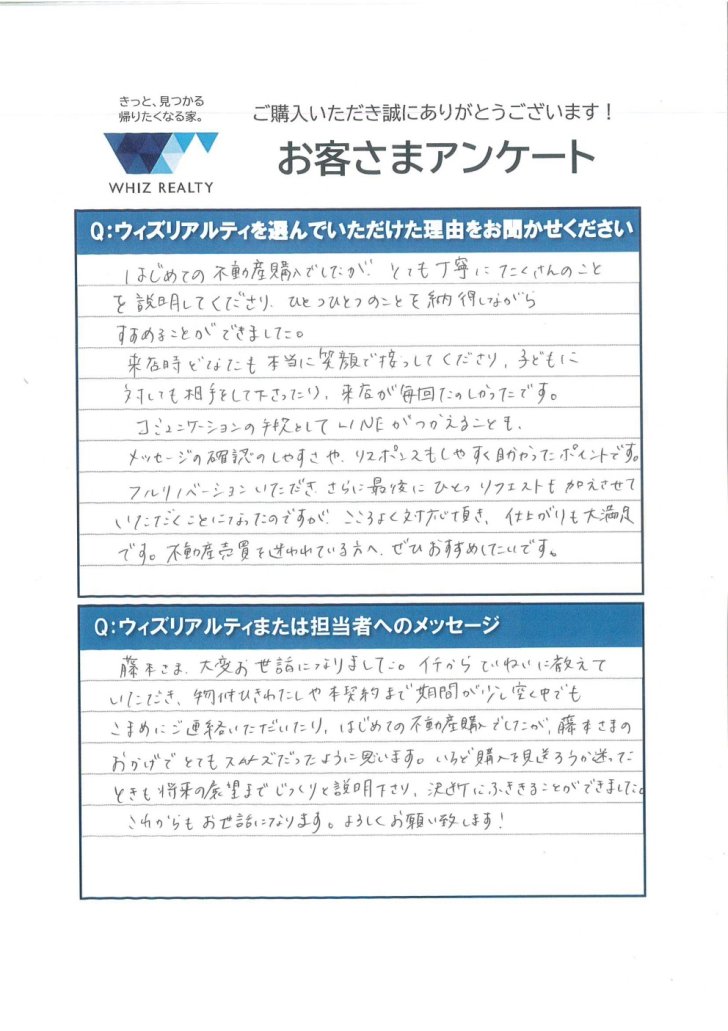 きっと、見つかる
帰りたくなる家。
WHIZ REALTY
ご購入いただき誠にありがとうございます！
お客さまアンケート
Q：ウィズリアルティを選んでいただけた理由をお聞かせください
はじめての不動産購入でしたが、とても丁寧にたくさんのこと
を説明してくださり、ひとつひとつのことを納得しながら
すすめることができました。
来店時どなたも本当に笑顔で接っしてくださり、子どもに
対しても相手をして下さったり、来店が毎回たのしかったです。
コミュニケーションの手段としてLINEがつかえることも、
メッセージの確認のしやすさや、リスポンスもしやすく助かったポイントです。
フルリノベーションいただき、さらに最後にひとつリクエストも加えさせて
いただくことになったのですが、こころよく対応頂き、仕上がりも大満足
です。不動産売買を迷われている方へ、ぜひおすすめしたいです。
Q：ウィズリアルティまたは担当者へのメッセージ
藤本さま、大変お世話になりました。イチからていねいに教えて
いただき、物件ひきわたしや本契約まで期間が少し空く中でも
こまめにご連絡いただいたり、はじめての不動産購入でしたが、藤本さまの
おかげでとてもスムーズだったように思います。いちど購入を見送ろうか迷った
ときも将来の展望までじっくりと説明下さり、決断にふみきることができました。
これからもお世話になります。よろしくお願い致します！